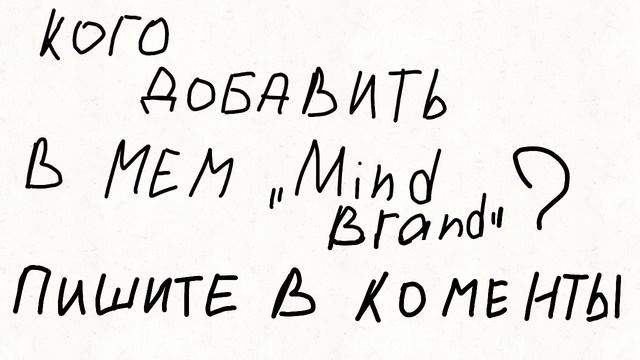 кого
ДОБАВИТЬ
В МЕМ „Mind
Brand" ?
ПИШИТЕ В КОМЕНТЫ